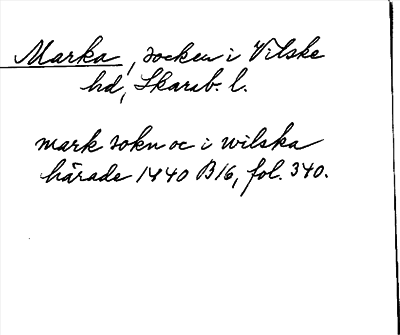 Marka, socken i Vilske
hd, Skarab. l.
mark sokn oc i wilska
härade 1440 B16, fol. 340.